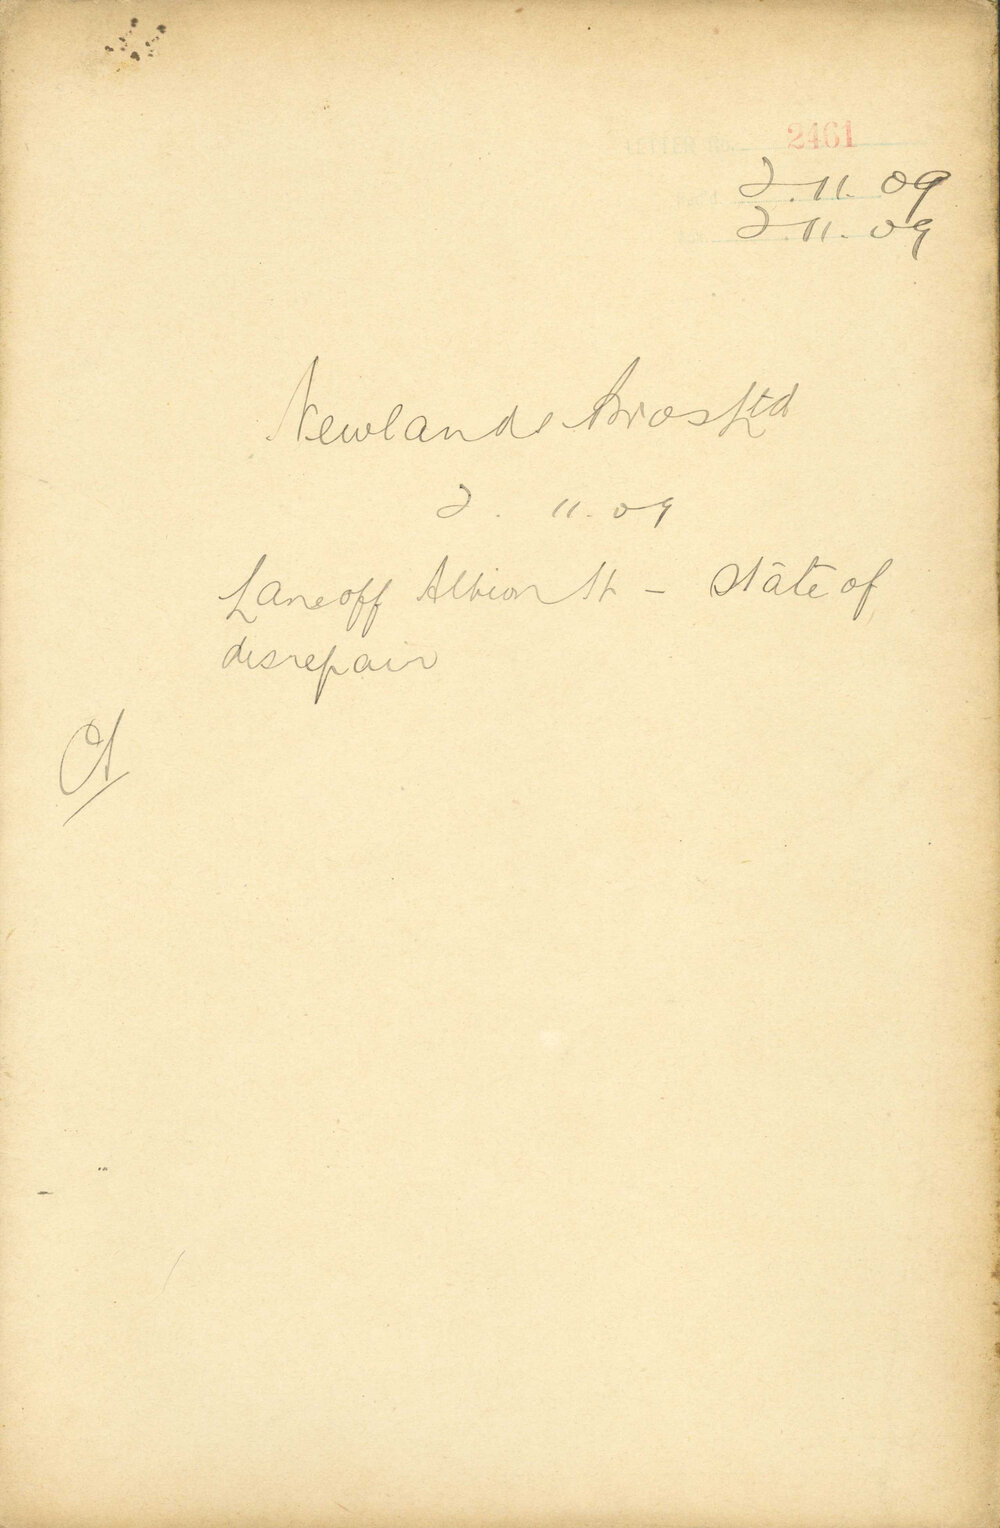 LETTER No. 2461
2.11.09
2.11.09
Newlands Bros Ltd
2.11.09
Lane off Albion St - State of
disrepair